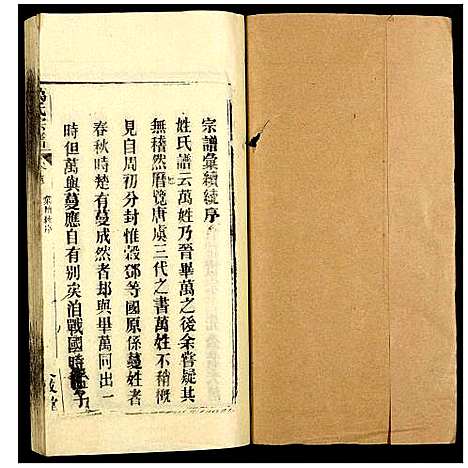 宗譜彙續統序
姓氏譜云萬姓乃晉畢萬之後余嘗疑其
無稽然曆覽唐虞三代之書萬姓不稍概
見自周初分封惟穀鄧等國原係蔓姓者
春秋時楚有蔓成然者却與畢萬同出一
時但萬與蔓應自有别矣洎戰國時
萬氏宗譜